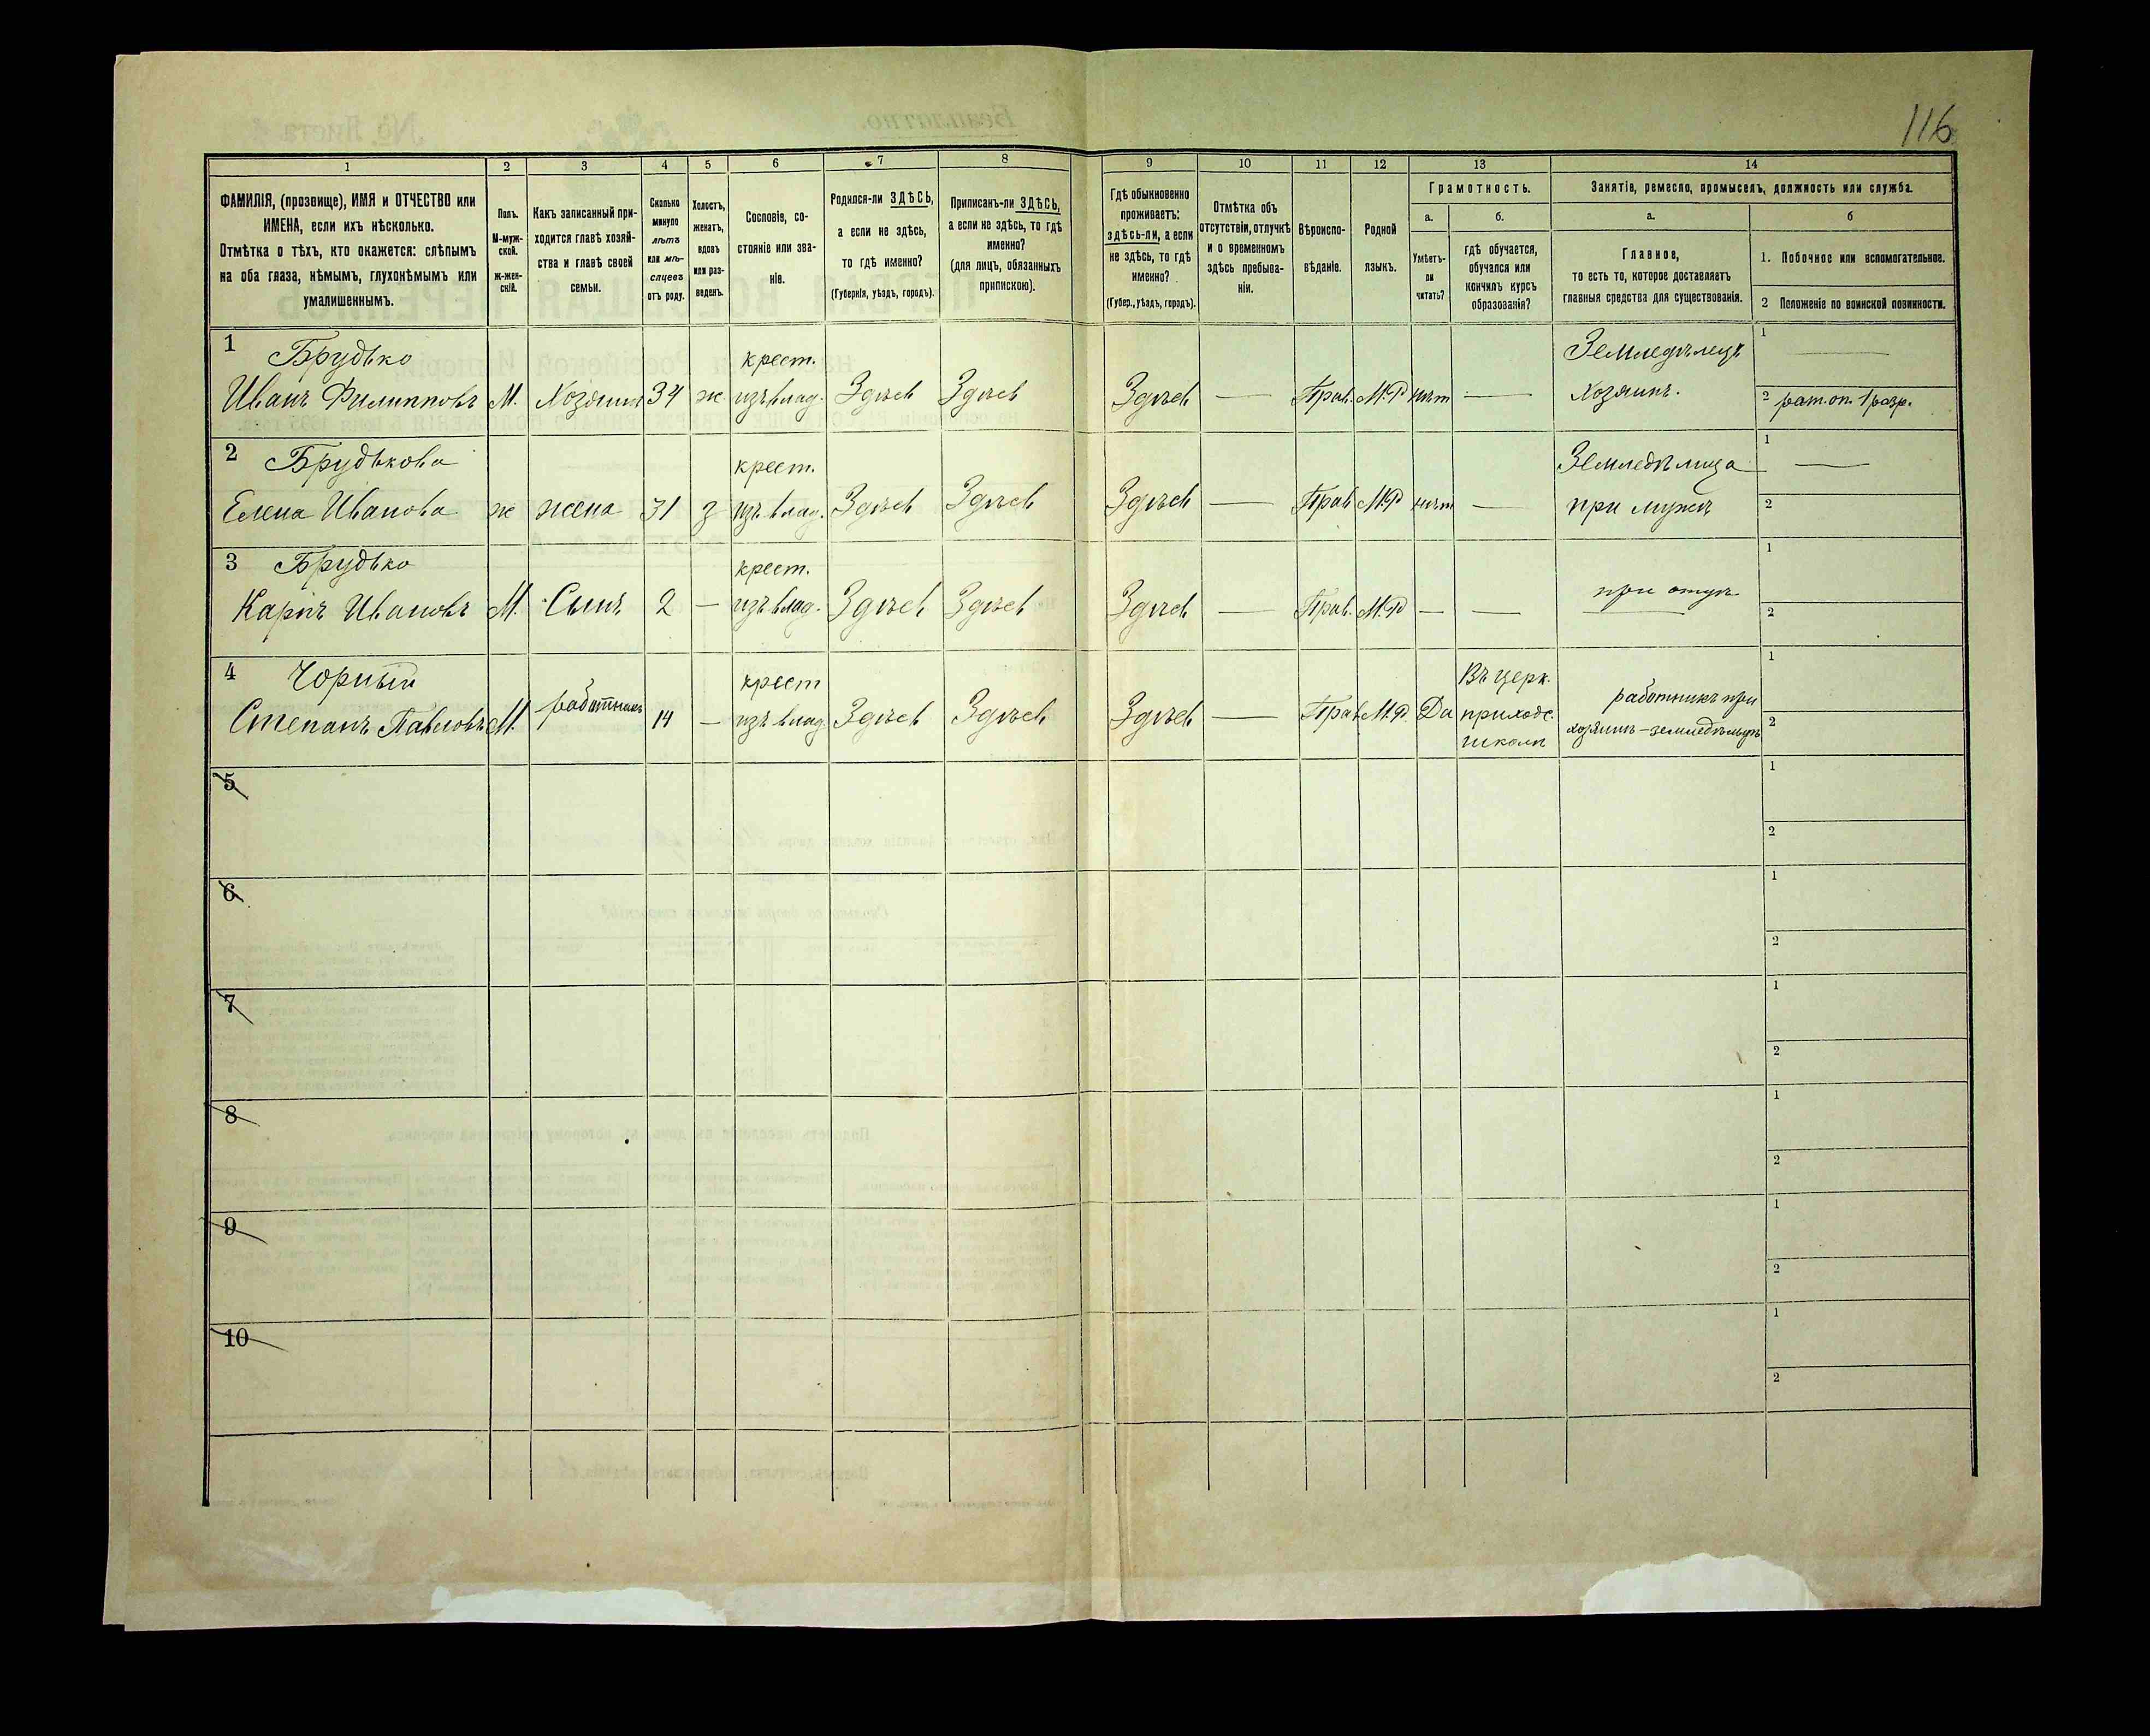 116
1 2 3 4 5 6 7 8 9 10 11 12 13 14
ФАМИЛІЯ, (прозвище), ИМЯ и ОТЧЕСТВО или
ИМЕНА, если ихъ нѣсколько.
Отмѣтка о тѣхъ, кто окажется: слѣпымъ
на оба глаза, нѣмымъ, глухонѣмымъ или
умалишеннымъ.
Полъ.
М-муж-
ской.
ж-жен-
скій.
Какъ записанный при-
ходится главѣ хозяй-
ства и главѣ своей
семьи.
Сколько
минуло
лѣтъ
или мѣ-
сяцевъ
отъ роду.
Холостъ,
женатъ,
вдовъ
или раз-
веденъ.
Сословіе, со-
стояніе или зва-
ніе.
Родился-ли ЗДѢСЬ,
а если не здѣсь,
то гдѣ именно?
(Губернія, уѣздъ, городъ).
Приписанъ-ли ЗДѢСЬ,
а если не здѣсь, то гдѣ
именно?
(для лицъ, обязанныхъ
припискою).
Гдѣ обыкновенно
проживаетъ:
здѣсь-ли, а если
не здѣсь, то гдѣ
именно?
(Губер., уѣздъ, городъ).
Отмѣтка объ
отсутствіи, отлучкѣ
и о временномъ
здѣсь пребыва-
ніи.
Вѣроиспо-
вѣданіе.
Родной
языкъ.
Грамотность.
а.
Умѣетъ-
ли
читать?
б.
гдѣ обучается,
обучался или
кончилъ курсъ
образованія?
Занятіе, ремесло, промыселъ, должность или служба.
а.
Главное,
то есть то, которое доставляетъ
главныя средства для существованія.
б
1. Побочное или вспомогательное.
2 Положеніе по воинской повинности.
1 Брудько крест. Земледѣлецъ 1 —
Иванъ Филипповъ М. Хозяинъ 34 ж изъ влад. Здѣсь Здѣсь Здѣсь — Прав. М.Р нѣт — Хозяинъ. 2 рат. оп. 1 разр.
2 Брудькова крест. Земледѣлица 1 —
Елена Иванова ж жена 31 з изъ влад. Здѣсь Здѣсь Здѣсь — Прав М.Р нѣт — при мужѣ 2
3 Брудько крест. 1
Карпъ Ивановъ М. Сынъ 2 — изъ влад. Здѣсь Здѣсь Здѣсь — Прав. М.Р — — при отцѣ 2
4 Чорный крест Въ церк. работникъ при 1
Степанъ Павловъ М. работникъ 14 — изъ влад. Здѣсь Здѣсь Здѣсь — Прав М.Р. Да приходс. хозяинѣ-земледѣльцѣ 2
школѣ
5 1
2
6 1
2
7 1
2
8 1
2
9 1
2
10 1
2